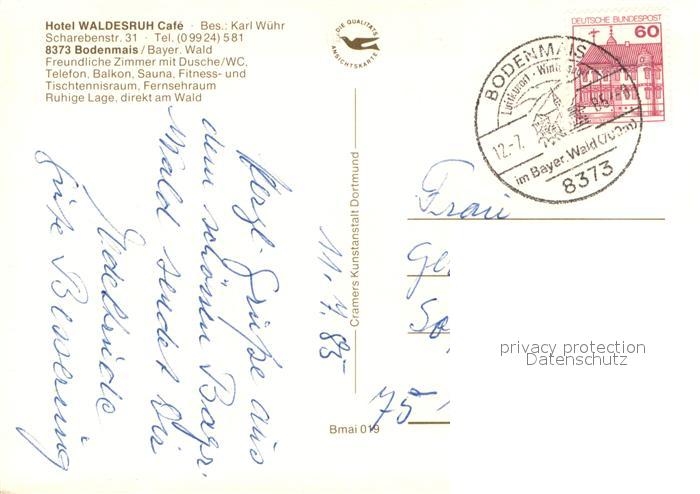 Hotel WALDESRUH Café · Bes.: Karl Wühr
Scharebenstr. 31 · Tel. (0 99 24) 5 81
8373 Bodenmais / Bayer. Wald
Freundliche Zimmer mit Dusche/WC,
Telefon, Balkon, Sauna, Fitness- und
Tischtennisraum, Fernsehraum
Ruhige Lage, direkt am Wald
DIE QUALITÄTS
ANSICHTSKARTE
DEUTSCHE BUNDESPOST
60
BODENMAIS
Luftkurort · Wintersport
12.-7.
im Bayer. Wald (700m)
8373
Herzl. Grüße aus
dem schönen Bayr.
Wald sendet Dir
11.7.85
Cramers Kunstanstalt Dortmund
Bmai 019
Frau
Ge
So
75
privacy protection
Datenschutz